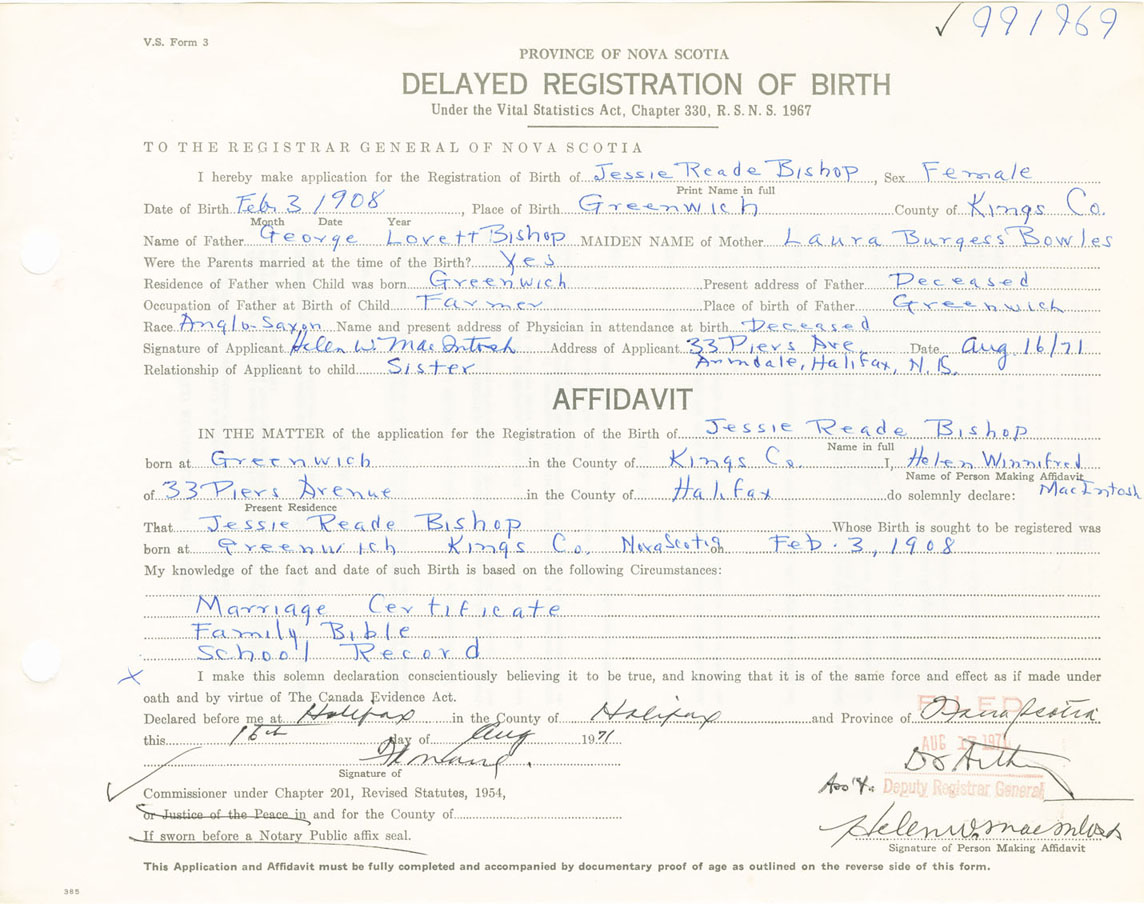 991969
V.S. Form 3
PROVINCE OF NOVA SCOTIA
DELAYED REGISTRATION OF BIRTH
Under the Vital Statistics Act, Chapter 330, R. S. N. S. 1967
TO THE REGISTRAR GENERAL OF NOVA SCOTIA
I hereby make application for the Registration of Birth of Jessie Reade Bishop, Sex Female
Print Name in full
Date of Birth Feb 3 1908, Place of Birth Greenwich County of Kings Co.
Month Date Year
Name of Father George Lovett Bishop MAIDEN NAME of Mother Laura Burgess Bowles
Were the Parents married at the time of the Birth? Yes
Residence of Father when Child was born Greenwich Present address of Father Deceased
Occupation of Father at Birth of Child Farmer Place of birth of Father Greenwich
Race Anglo-Saxon Name and present address of Physician in attendance at birth Deceased
Signature of Applicant Helen W. MacIntosh Address of Applicant 33 Piers Ave. Date Aug 16/71
Relationship of Applicant to child Sister Armdale, Halifax, N.S.
AFFIDAVIT
IN THE MATTER of the application for the Registration of the Birth of Jessie Reade Bishop
Name in full
born at Greenwich in the County of Kings Co. I, Helen Winnifred
Name of Person Making Affidavit
of 33 Piers Avenue in the County of Halifax do solemnly declare: MacIntosh
Present Residence
That Jessie Reade Bishop Whose Birth is sought to be registered was
born at Greenwich Kings Co. Nova Scotia on Feb. 3, 1908
My knowledge of the fact and date of such Birth is based on the following Circumstances:
Marriage Certificate
Family Bible
School Record
I make this solemn declaration conscientiously believing it to be true, and knowing that it is of the same force and effect as if made under
oath and by virtue of The Canada Evidence Act.
Declared before me at Halifax in the County of Halifax and Province of Nova Scotia
FILED
this 16th day of Aug 1971
AUG 17 1971
Signature of
Commissioner under Chapter 201, Revised Statutes, 1954,
Deputy Registrar General
or Justice of the Peace in and for the County of
Helen W. MacIntosh
If sworn before a Notary Public affix seal.
Signature of Person Making Affidavit
This Application and Affidavit must be fully completed and accompanied by documentary proof of age as outlined on the reverse side of this form.
385